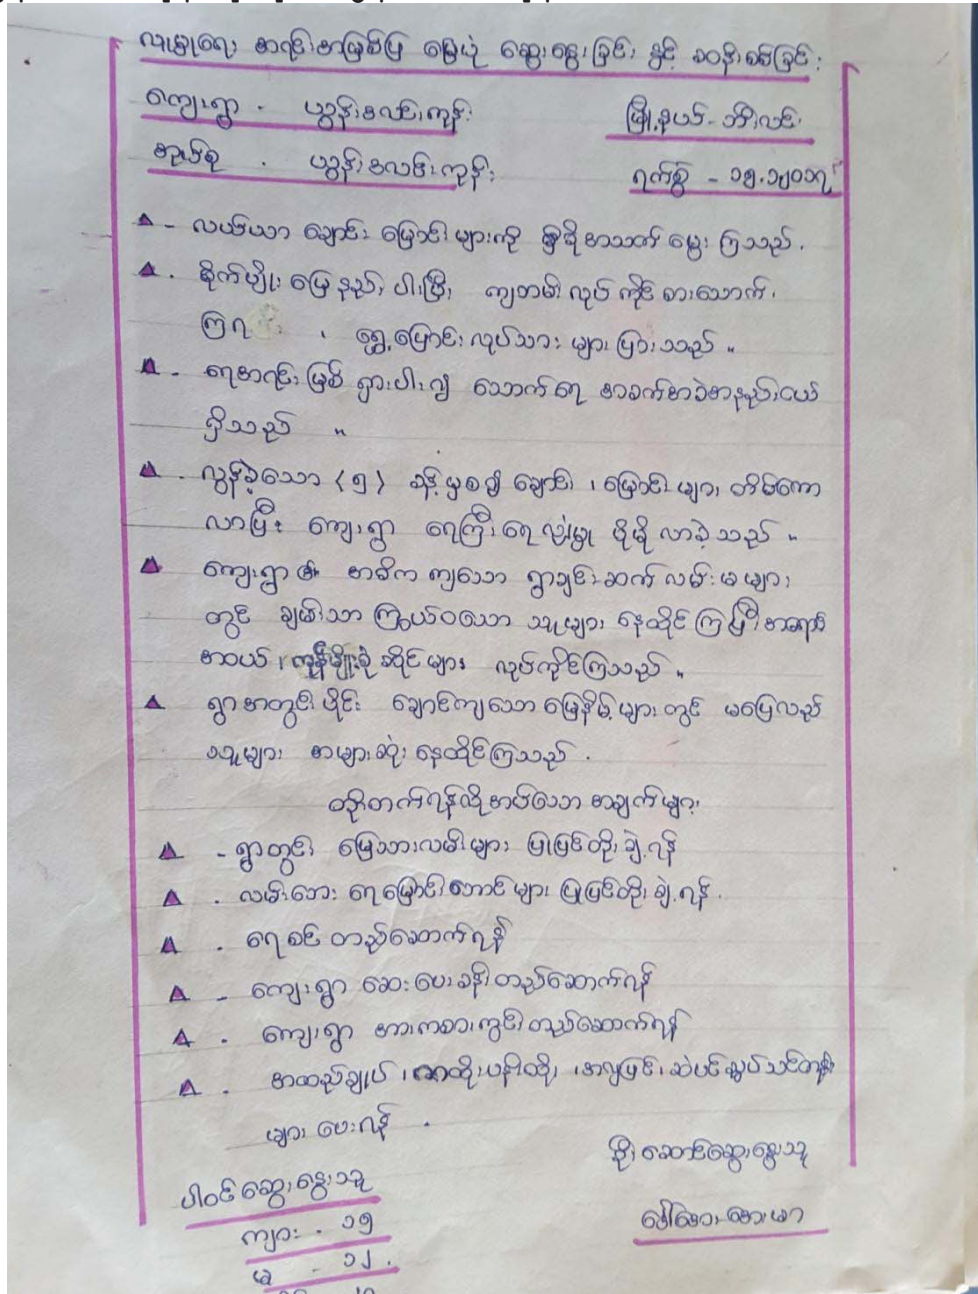 လူမှုရေး အရင်းအမြစ်ပြ မြေပုံ ဆွေးနွေးခြင်း နှင့် ဆန်းစစ်ခြင်း
ကျေးရွာ - ယွန်းစလင်းကုန်း မြို့နယ် - ဘီးလင်း
အုပ်စု - ယွန်းစလင်းကုန်း ရက်စွဲ - ၁၅.၁၂၀၁၇
- လယ်ယာ ချောင်း မြောင်းများကို မှီခိုအသက် မွေး ကြသည်.
- စိုက်ပျိုး မြေနည်း ပါးပြီး ကျဘမ်း လုပ်ကိုင် စားသောက်.
ကြရ ၊ ရွှေ့ပြောင်း လုပ်သား များ ပြားသည် ။
- ရေအရင်း မြစ် ရှားပါး၍ သောက်ရေ အခက်အခဲအနည်းငယ်
ရှိသည် ။
- လွန်ခဲ့သော (၅) ခန့်မှစ၍ ချောင်း ၊ မြောင်းများ တိမ်ကော
လာပြီး ကျေးရွာ ရေကြီးရေလျှံမှု ပိုမို လာခဲ့သည် ။
ကျေးရွာ ၏ အဓိက ကျသော ရွာချင်းဆက် လမ်းမ များ
တွင် ချမ်းသာ ကြွယ်ဝသော သူများ နေထိုင် ကြပြီး အရောင်း
အဝယ် ၊ ကုန်မျိုးစုံ ဆိုင်များ လုပ်ကိုင်ကြသည် ။
ရွာအတွင်းပိုင်း ချောင်ကျသော မြေနိမ့်များတွင် မပြေလည်
သူများ အများဆုံး နေထိုင်ကြသည် .
တိုးတက်ရန်လိုအပ်သော အချက်များ
- ရွာတွင်း မြေသားလမ်းများ ပြုပြင်တိုးချဲ့ရန်
- လမ်းဘေး ရေမြောင်းဘောင်များ ပြုပြင်တိုးချဲ့ရန် .
- ရေစင် တည်ဆောက်ရန်
- ကျေးရွာ ဆေးပေးခန်းတည်ဆောက်ရန်
- ကျေးရွာ အားကစားကွင်းတည်ဆောက်ရန်
- အထည်ချုပ် ၊ ယန်းထိုး ၊ အလှပြင် ၊ ဆံပင်ညှပ်သင်တန်း
များ ပေးရန် .
ဦးဆောင်ဆွေးနွေးသူ
ပါဝင်ဆွေးနွေးသူ
ကျား - ၁၅
မ - ၁၂ .